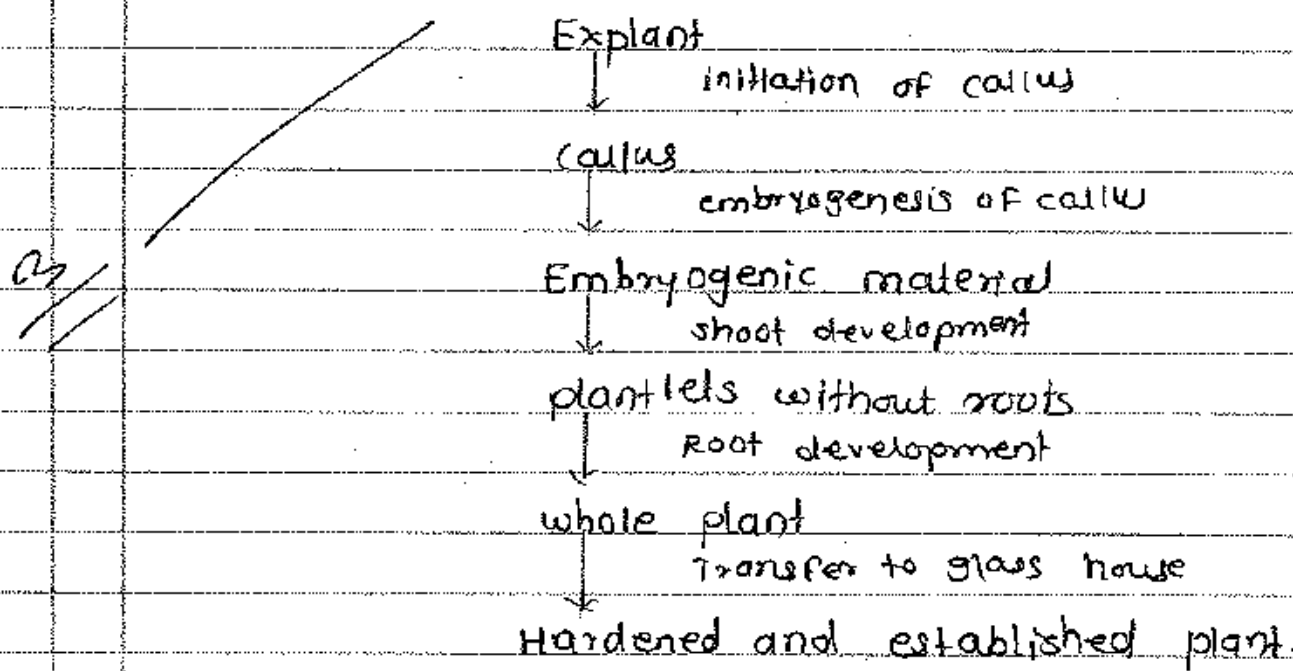 Explant
initiation of callus
Callus
embryogenesis of callus
Embryogenic material
shoot development
plantlets without roots
Root development
whole plant
Transfer to glass house
Hardened and established plant.